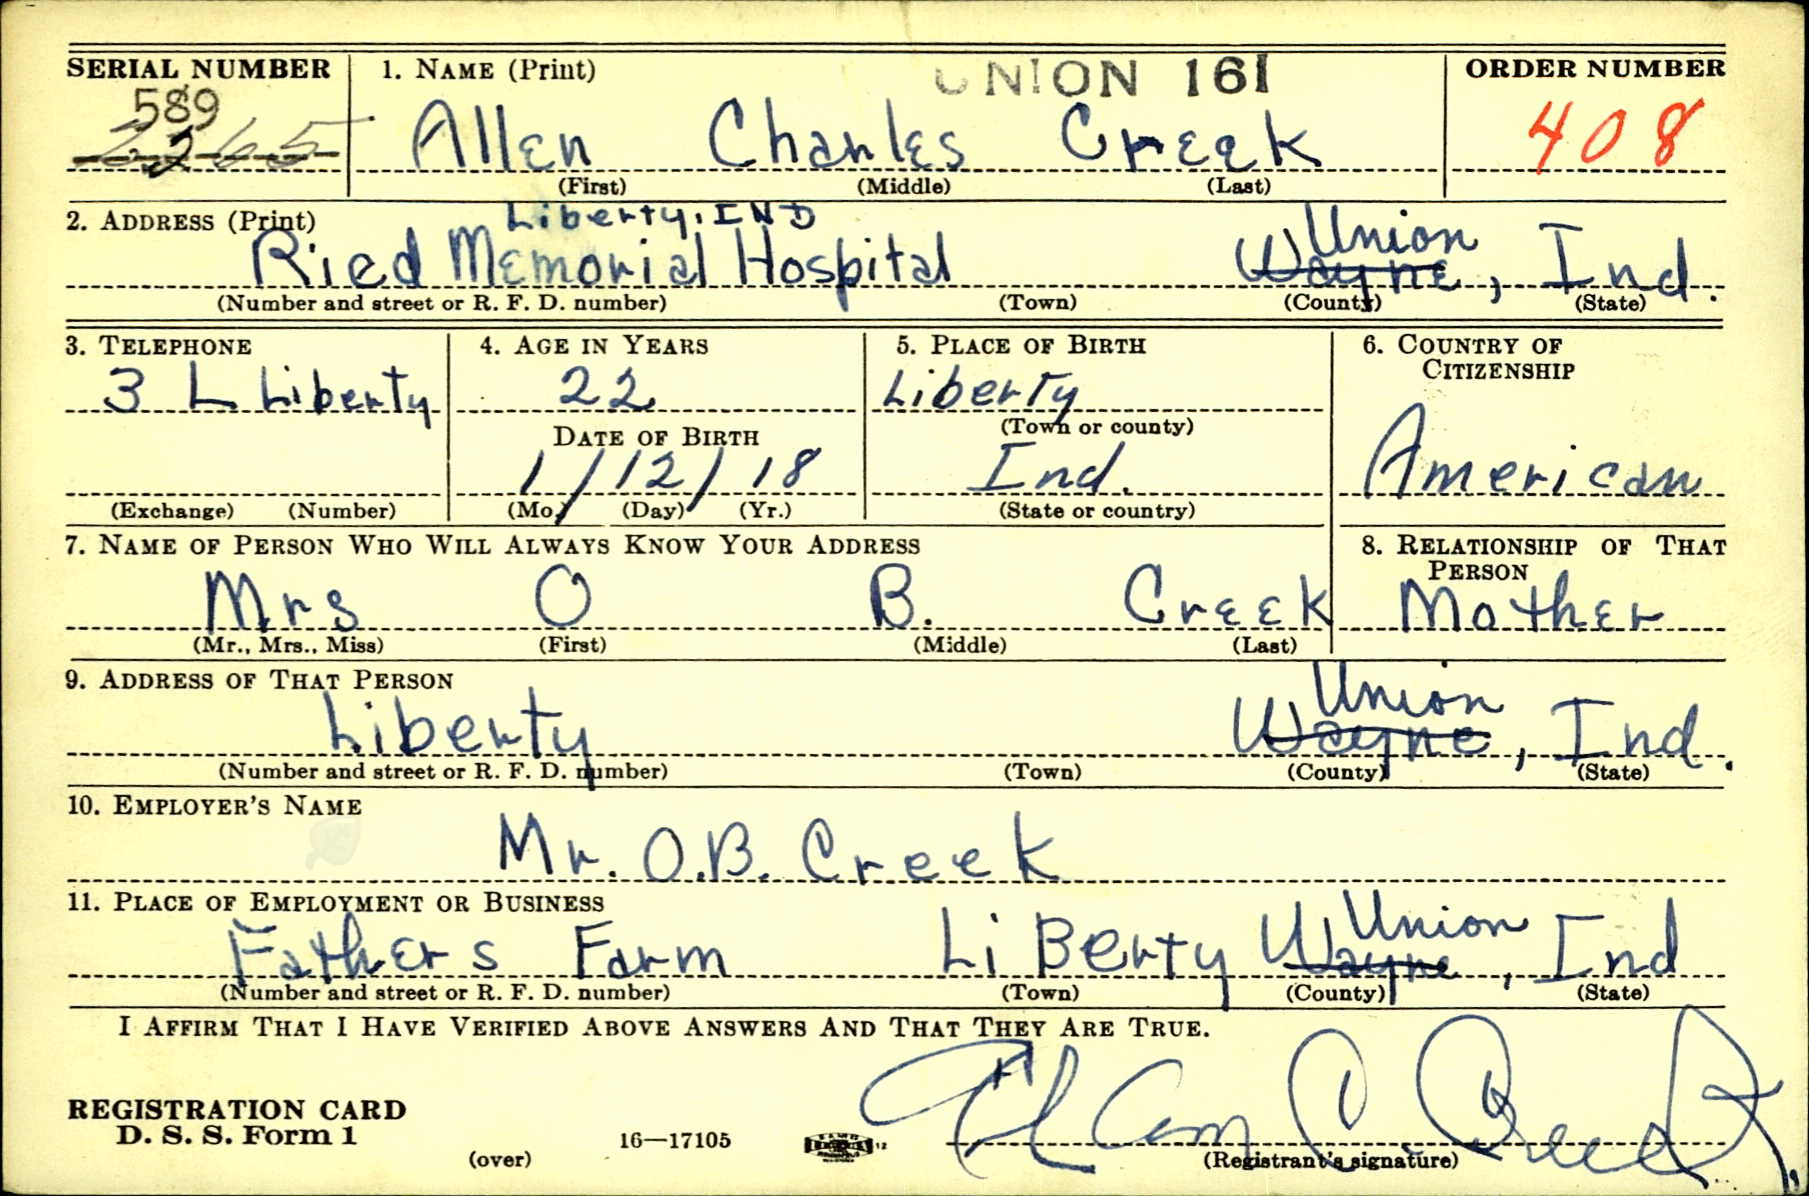 SERIAL NUMBER 1. NAME (Print) UNION 161 ORDER NUMBER
589
2265 Allen Charles Creek 408
(First) (Middle) (Last)
2. ADDRESS (Print) Liberty, IND Union
Ried Memorial Hospital Wayne, Ind.
(Number and street or R. F. D. number) (Town) (County) (State)
3. TELEPHONE 4. AGE IN YEARS 5. PLACE OF BIRTH 6. COUNTRY OF
CITIZENSHIP
3 L Liberty 22 Liberty
DATE OF BIRTH (Town or county)
1/12/18 Ind. American
(Exchange) (Number) (Mo.) (Day) (Yr.) (State or country)
7. NAME OF PERSON WHO WILL ALWAYS KNOW YOUR ADDRESS 8. RELATIONSHIP OF THAT
PERSON
Mrs O B. Creek Mother
(Mr., Mrs., Miss) (First) (Middle) (Last)
9. ADDRESS OF THAT PERSON Union
Liberty Wayne, Ind.
(Number and street or R. F. D. number) (Town) (County) (State)
10. EMPLOYER'S NAME
Mr. O.B. Creek
11. PLACE OF EMPLOYMENT OR BUSINESS Union
Fathers Farm LiBerty Wayne, Ind
(Number and street or R. F. D. number) (Town) (County) (State)
I AFFIRM THAT I HAVE VERIFIED ABOVE ANSWERS AND THAT THEY ARE TRUE.
REGISTRATION CARD
D. S. S. Form 1 16—17105 12 Allen C. Creek
(over) (Registrant's signature)